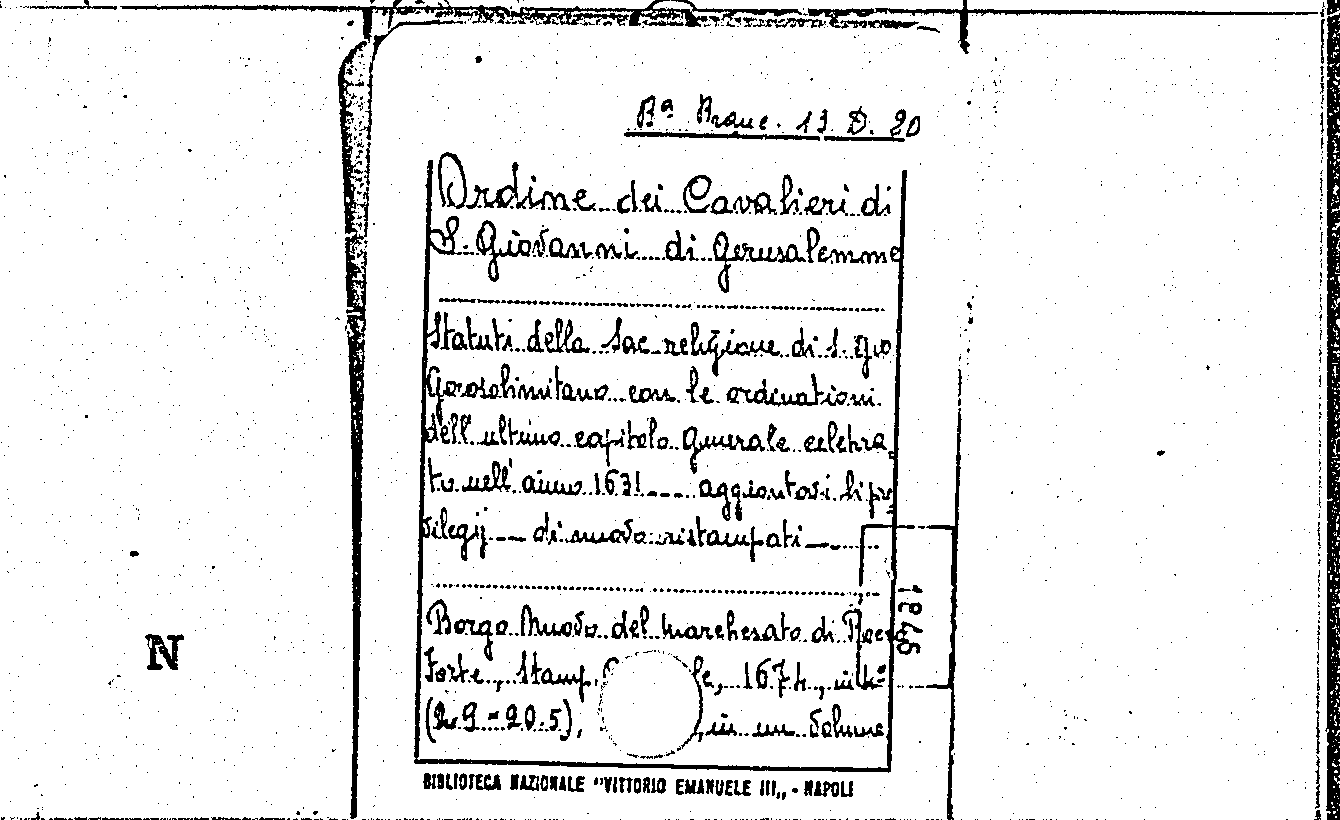 Bª Branc. 13. D. 20
Ordine dei Cavalieri di
S. Giovanni di Gerusalemme
Statuti della Sac religione di S. Gio
Gerosolimitano con le ordinationi
dell'ultimo capitolo generale celebra-
to nell'anno 1631 --- aggiontovi li pri-
vilegij --- di nuovo ristampati ---
Borgo Nuovo del Marchesato di Rocca
Forte, Stamp. le, 1674, in
20.5), in un volume
BIBLIOTECA NAZIONALE "VITTORIO EMANUELE III,, - NAPOLI
1876
N